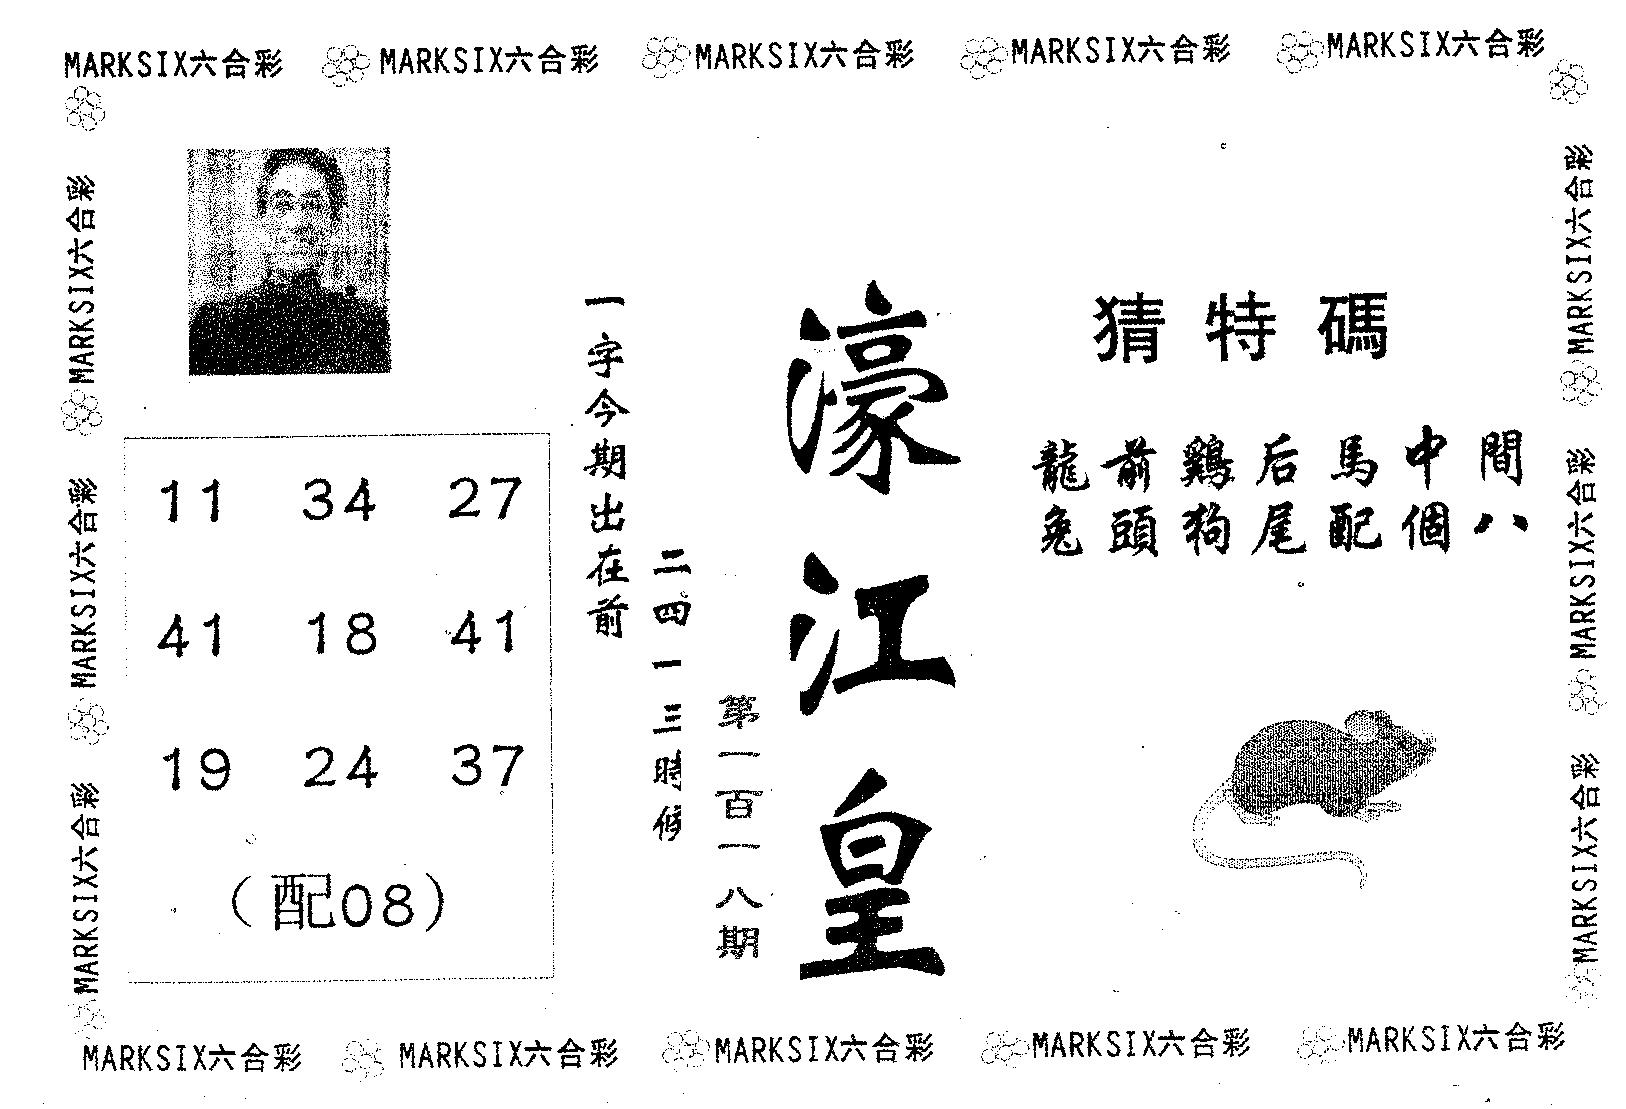 MARKSIX六合彩 MARKSIX六合彩 MARKSIX六合彩 MARKSIX六合彩 MARKSIX六合彩
MARKSIX六合彩
MARKSIX六合彩
MARKSIX六合彩
11 34 27
41 18 41
19 24 37
(配08)
一字今期出在前
二四一三時候
第一百一八期
濠江皇
猜特碼
龍前鷄后馬中間
兔頭狗尾配個八
MARKSIX六合彩
MARKSIX六合彩
MARKSIX六合彩
MARKSIX六合彩 MARKSIX六合彩 MARKSIX六合彩 MARKSIX六合彩 MARKSIX六合彩